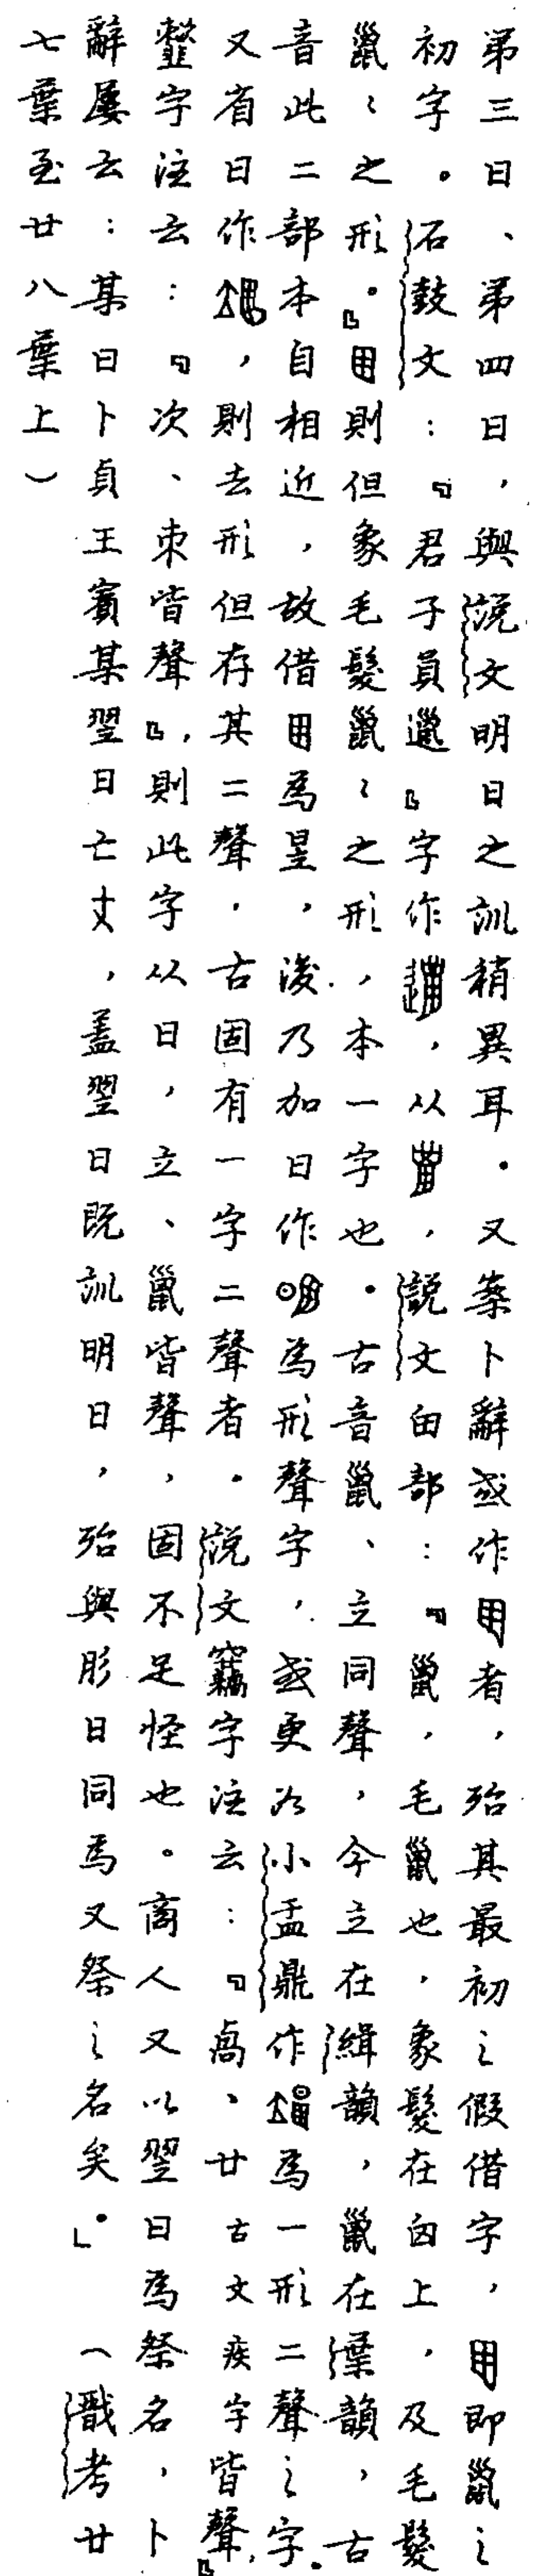 第三日、第四日，與說文明日之訓稍異耳．又案卜辭或作者，殆其最初之假借字，即巤之
初字。石鼓文：『君子員邋』字作，从，說文囟部：『巤，毛巤也，象髮在囟上，及毛髮
巤〻之形．』則但象毛髮巤〻之形，本一字也．古音巤、立同聲，今立在緝韻，巤在葉韻，古
音此二部本自相近，故借為昱，後乃加日作為形聲字，或更从小盂鼎作為一形二聲之字．
又省日作，則去形但存其二聲．古固有一字二聲者．說文竊字注云：『卨、廿古文疾字皆聲』，
韲字注云：『次、朿皆聲』，則此字从日，立、巤皆聲，固不足怪也。商人又以翌日為祭名，卜
辭屢云：某日卜貞王賓某翌日亡𡆥，蓋翌日既訓明日，殆與肜日同為又祭之名矣．」（戩考廿
七葉至廿八葉上）